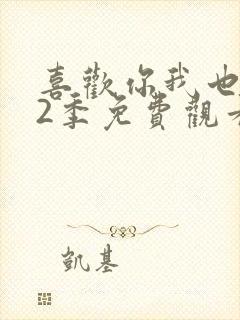 喜歡你我也
2季免費觀
凱基